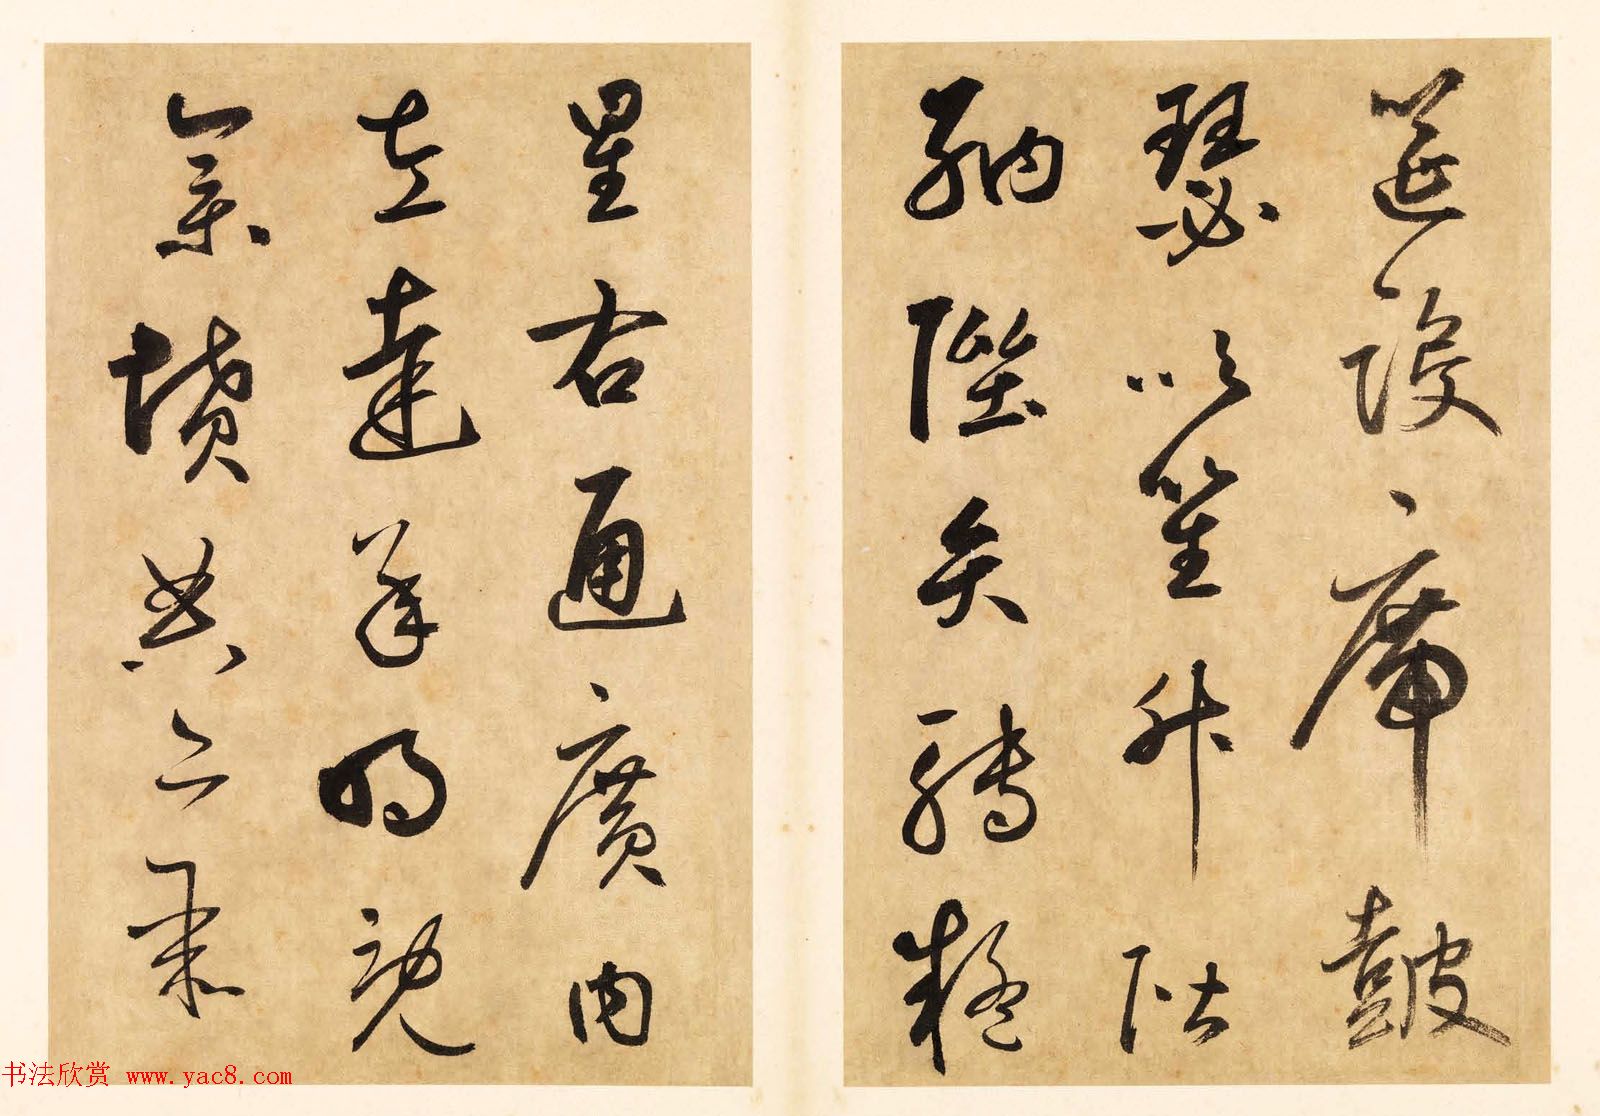 筵設席鼓
瑟吹笙升階
納陛弁轉疑
星右通廣內
左達承明既
集墳典亦聚
书法欣赏 www.yac8.com